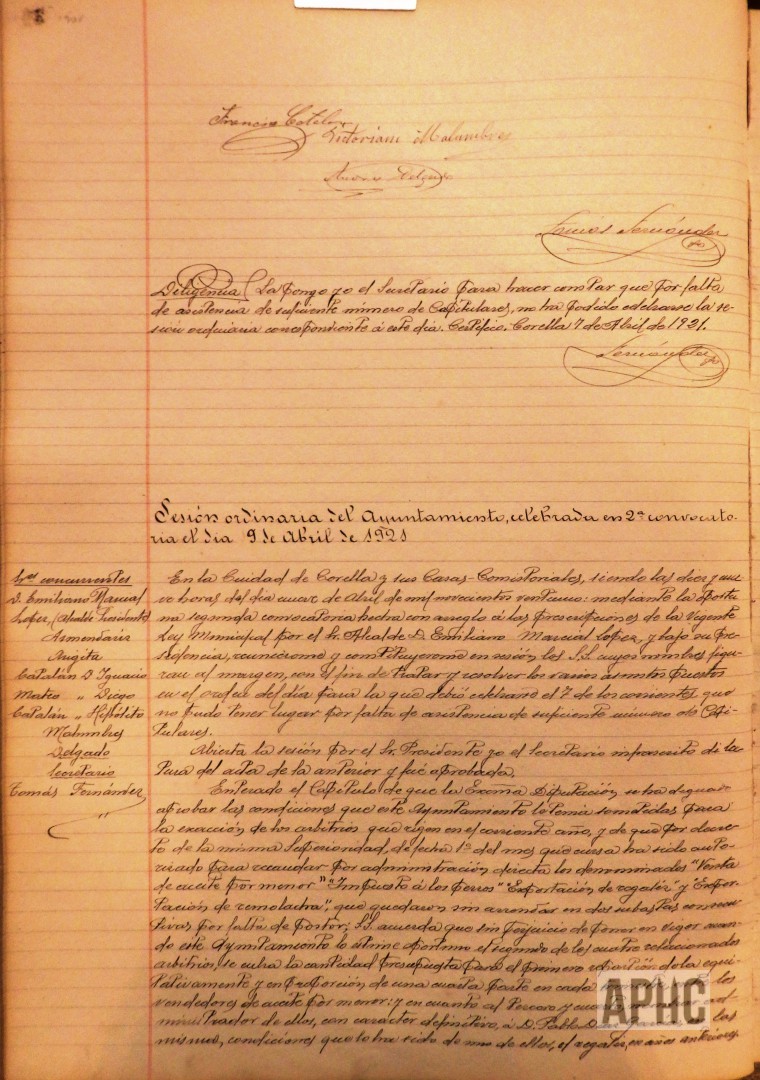 Francis Catalan
Victoriano Malumbres
Delgado
Fernández
Diligencia (La pongo yo el Secretario para hacer constar que por falta
de asistencia de suficiente número de Capitulares, no ha podido celebrarse la se-
sión ordinaria correspondiente á este dia. Certifico. Corella 7 de Abril de 1921.
Fernández
Sesión ordinaria del Ayuntamiento, celebrada en 2ª convocato-
ria el dia 9 de Abril de 1921
Sres concurrentes
D. Emiliano Marcial
Lopez, (Alcalde Presidente)
Armendariz
Angita
Catalán D. Ignacio
Mateo " Diego
Catalán " Hipólito
Malumbres
Delgado
Secretario
Tomás Fernández
"
En la Ciudad de Corella y sus Casas-Consistoriales, siendo las diez y nue-
ve horas del dia nueve de Abril de mil novecientos veintiuno: mediante la oportu-
na segunda convocatoria hecha con arreglo á las prescripciones de la vigente
Ley Municipal por el Sr. Alcalde D. Emiliano Marcial Lopez, y bajo su pre-
sidencia, reunieronse y constituyeronse en sesión los S.S. cuyos nombres figu-
ran al margen, con el fin de tratar y resolver los varios asuntos puestos
en el orden del dia para la que debió celebrarse el 7 de los corrientes que
no pudo tener lugar por falta de asistencia de suficiente número de Capi-
tulares.
Abierta la sesión por el Sr. Presidente yo el Secretario infrascrito di lec-
tura del acta de la anterior y fué aprobada.
Enterado el Capítulo de que la Excma Diputación se ha dignado
aprobar las condiciones que este Ayuntamiento le tenia sometidas para
la exacción de los arbitrios que rigen en el corriente año, y de que por decre-
to de la misma Superioridad, de fecha 1º del mes que cursa ha sido auto-
rizado para recaudar por administración directa los denominados "Venta
de aceite por menor" "Impuesto á los perros" "Exportación de regaliz" y "Expor-
tación de remolacha", que quedaron sin arrendar en dos subastas consecu-
tivas por falta de postor; S.S. acuerda que sin perjuicio de poner en vigor cuan-
do este Ayuntamiento lo estime oportuno el segundo de los cuatro relacionados
arbitrios, se cubra la cantidad presupuesta para el primero repartiéndola equi-
tativamente y en proporción de una cuarta parte en cada los
vendedores de aceite por menor: y en cuanto al tercero y ad-
ministrador de ellos, con carácter definitivo, á D. Pablo las
mismas condiciones que lo ha sido de uno de ellos, el regaliz, en años anteriores.
APHC